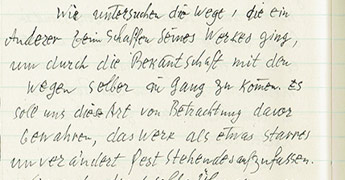 Wir untersuchen die Wege, die ein
Anderer beim Schaffen seines Werkes ging,
um durch die Bekantschaft mit den
Wegen selber in Gang zu komen. Es
soll uns diese Art von Betrachtung davor
bewahren, das Werk als etwas starres
unverändert fest stehendes aufzufassen.